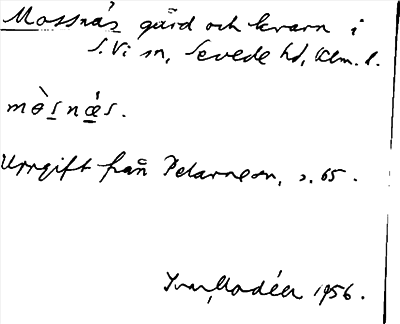 Mossnäs gård och kvarn i
S. Vi sn, Sevede hd, Klm. l.
mòs næ´s.
Uppgift från Petarne sn, s. 65.
Ivar Modéer 1956.